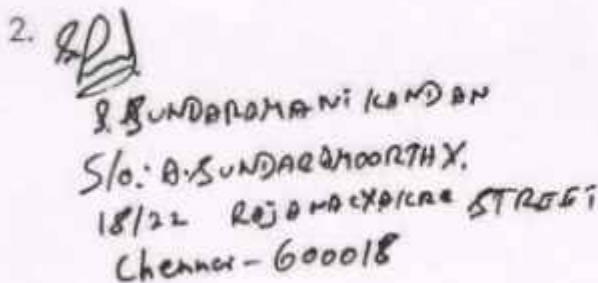 2.
S. SUNDARAMANiKANDAN
S/o: A. SUNDARAMOORTHY.
18/22 STREET
Chennai - 600018